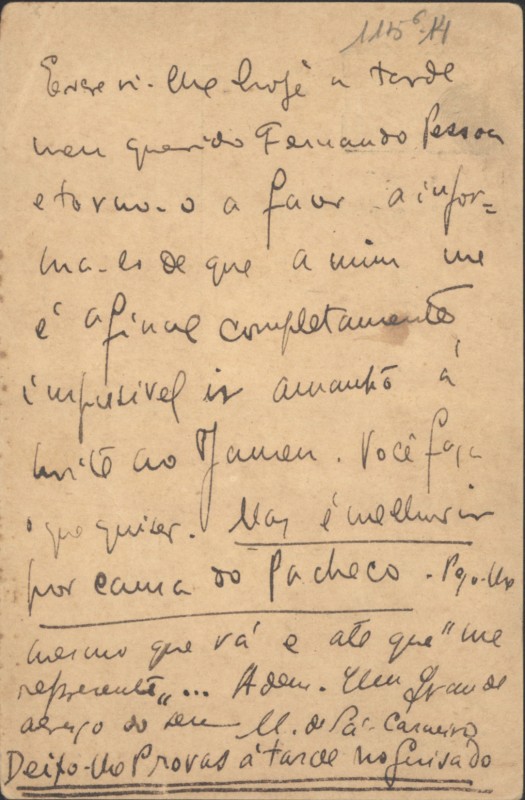 115⁶-14
Escrevi-lhe hoje a tarde
meu querido Fernando Pessoa
e torno-o a fazer a infor-
ma-lo de que a mim me
é afinal completamente
impossivel ir amanhã á
noite ao Jansen. Você faça
o que quiser. Mas é melhor ir
por causa do Pacheco. Peço-lhe
mesmo que vá e até que "me
represente"... Adeus. Um grande
abraço do seu M. de Sá-Carneiro
Deixo-lhe Provas á tarde no Guisado